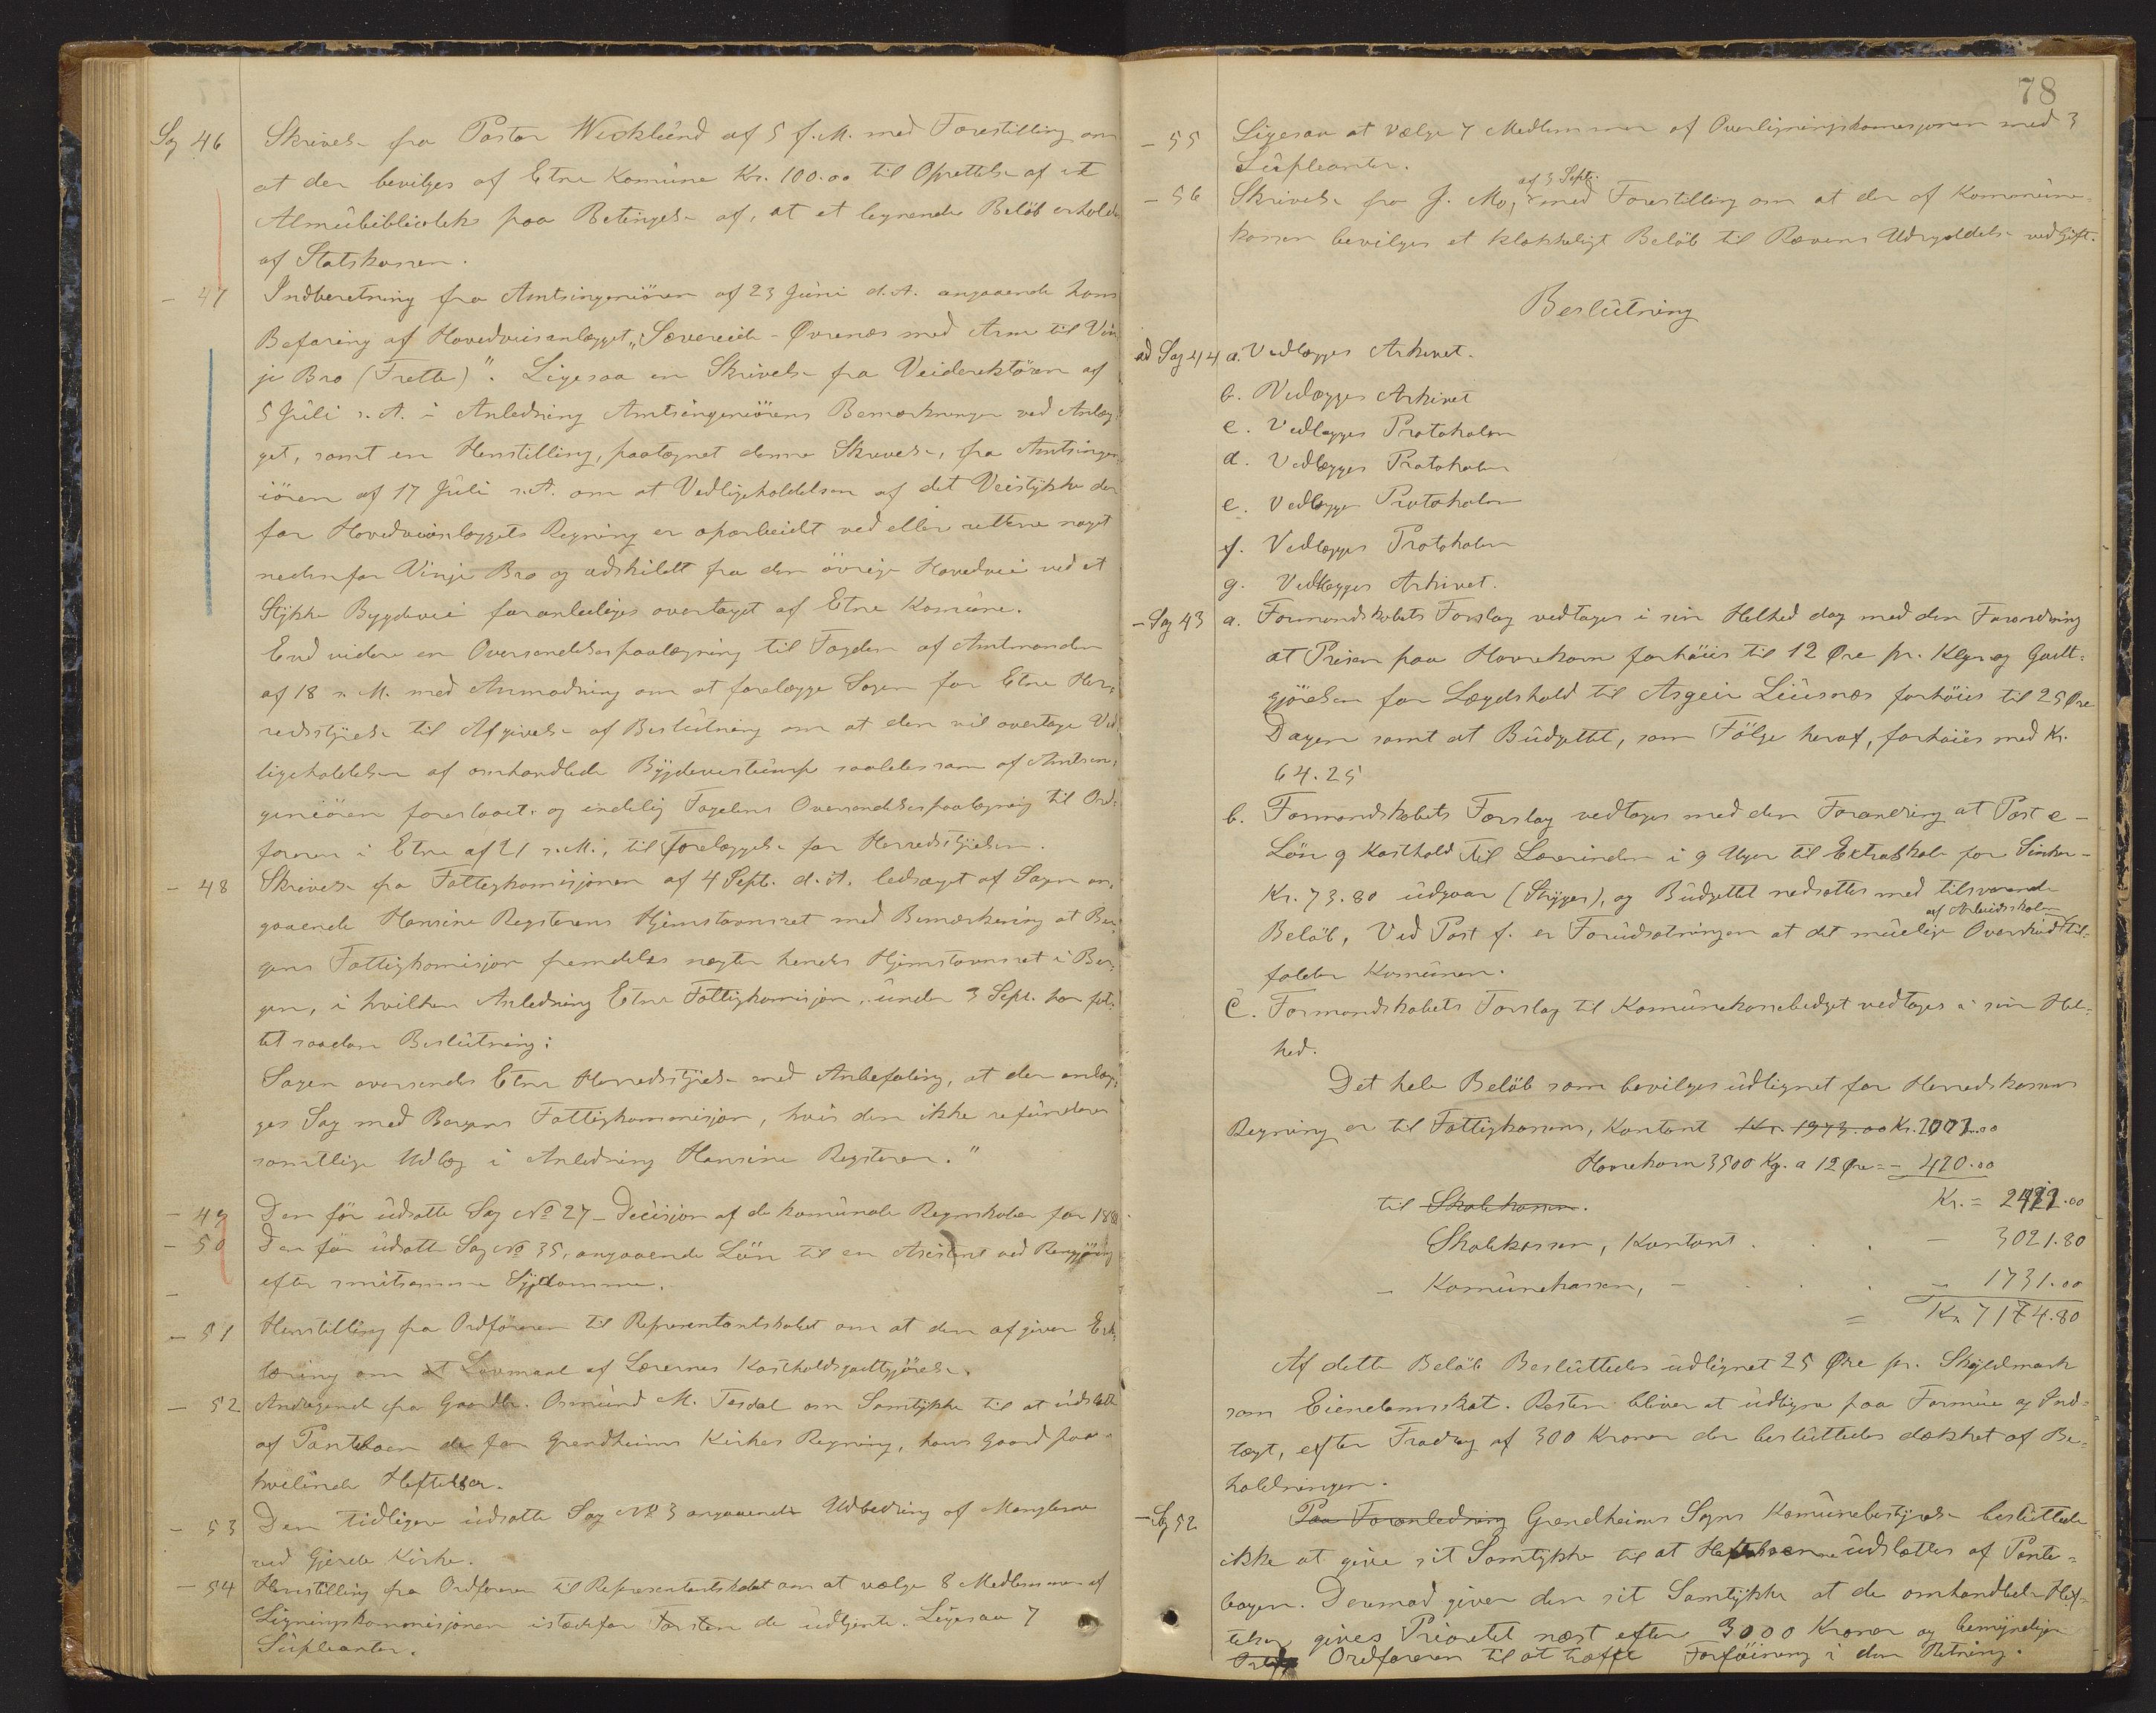 Sag 46 Skrivelse fra Pastor Wicklund af 5 f.M. med Forestilling om
at der bevilges af Etne Komune Kr. 100.00 til Oprettelse af et
Almubibliothek paa Betingelse af, at et lignende Beløb erholdes
af Statskassen.
- 47 Indberetning fra Amtsingeniören af 23 Juni d.A. angaaende hans
Befaring af Hovedveianlægget "Sævereide - Øvrenæs med Arm til Vin-
je Bro (Frette)". Ligesaa en Skrivelse fra Veiderektören af
5 Juli s.A. i Anledning Amtsingeniörens Bemærkninger ved Anlæg-
get, samt en Henstilling, paategnet denne Skrivelse, fra Amtsingen-
iören af 17 Juli s.A. om at Vedligeholdelsen af det Veistykke der
for Hovedveianlæggets Regning er oparbeidt ved eller rettere noget
nedenfor Vinje Bro og adskildt fra den övrige Hovedvei ved et
Stykke Bygdevei foranlediges overtaget af Etne Komune.
End videre en Oversendelsespaategning til Fogden af Amtmanden
af 18 s.M. med Anmodning om at forelægge Sagen for Etne Her-
redsstyrelse til Afgivelse af Beslutning om at den vil overtage Ved-
ligeholdelsen af omhandlede Bygdeveistump saaledes som af Amtsin-
geniören foreslaaet, og endelig Fogdens Oversendelsespaategning til Ord-
föreren i Etne af 21 s.M., til Forelæggelse for Herredsstyrelsen.
- 48 Skrivelse fra Fattigkomisjonen af 4 Sept. d.A. ledsaget af Sagen an-
gaaende Hansine Regsterens Hjemstavnsret med Bemærkning at Ber-
gens Fattigkomisjon fremdeles nægter hendes Hjemstavnsret i Ber-
gen, i hvilken Anledning Etne Fattigkomisjon, under 3 Sept. har fat-
tet saadan Beslutning:
Sagen oversendes Etne Herredsstyrelse med Anbefaling, at der anlæg-
ges Sag mod Bergens Fattigkommisjon, hvis den ikke refunderer
samtlige Udlæg i Anledning Hansine Regsteren."
- 49 Den før udsatte Sag No 27 - Decisjon af de komunale Regnskaber for 188
- 50 Den før udsatte Sag No 35, angaaende Lön til en Asistent ved Rengjöring
efter smitsomme Sygdomme.
- 51 Henstilling fra Ordföreren til Repræsentantskabet om at den afgiver Erk-
læring om et Lovmant af Lærernes Kostholdsgodtgjörelse.
- 52 Andragende fra Gaardbr. Osmund M. Tesdal om Samtykke til at udslette
af Panteboen de for Grendheims Kirkes Regning, hans Gaard paa-
hvilende Heftelser.
- 53 Den tidligere udsatte Sag No 3 angaaende Udbedring af Manglerne
ved Gjerde Kirke.
- 54 Henstilling fra Ordföreren til Repræsentantskabet om at vælge 8 Medlemmer af
Ligningskommisjonen istedetfor Forsten de udtjente. Ligesaa 7
Supleanter.
78
- 55 Ligesaa at vælge 7 Medlemmer af Overligningskomisjonen med 3
Supleanter.
af 3 Sept.
- 56 Skrivelse fra J. Mo, med Forestilling om at der af Kommune-
kassen bevilges et klækkeligt Beløb til Rævens Udryddelse ved Gift.
Beslutning
ad Sag 44 a. Vedlægges Arkivet.
b. Vedlægges Arkivet
c. Vedlægges Protokolen
d. Vedlægges Protokolen
e. Vedlægges Protokolen
f. Vedlægges Protokolen
g. Vedlægges Arkivet.
- Sag 43 a. Formandskabets Forslag vedtages i sin Helhed dog med den Forandring
at Prisen paa Havrekorn forhöies til 12 Øre pr. Klgr. og Godt-
gjörelsen for Lægdshold til Asgeir Liusnæs forhöies til 25 Øre
Dagen samt at Budgettet, som Følge heraf, forhöies med Kr.
64.25
b. Formandskabets Forslag vedtages med den Forandring at Post e -
Lön og Kosthold til Lærerinden i 9 Uger til Extraskole for Sinker -
Kr. 73.80 udgaar (Stryges), og Budgettet nedsættes med tilsvarende
af Arbeidsskolen
Beløb, Ved Post f. er Forudsætningen at det muelige Overskud til-
falder Komunen.
c. Formandskabets Forslag til Komunekassebudget vedtages i sin Hel-
hed.
Det hele Beløb som bevilges udlignet for Herredskassens
Regning er til Fattigkassen, Kontant Kr. 1973.00 Kr. 2002.00
Havrekorn 3500 Kg. a 12 Øre = - 420.00
til Skolekassen. Kr. = 2422.00
Skolekassen, Kontant . . . - 3021.80
- Komunekassen, - . . . - 1731.00
= Kr. 7174.80
Af dette Beløb Besluttedes udlignet 25 Øre pr. Skyldmark
som Eiendomsskat. Resten bliver at udligne paa Formue og Ind-
tægt, efter Fradrag af 300 Kroner der besluttedes dækket af Be-
holdningen.
- Sag 52 Paa Foranledning Grendheims Sogns Komunebestyrelse besluttede
ikke at give sit Samtykke til at Heftelserne udslettes af Pante-
bogen. Derimod giver den sit Samtykke at de omhandlede Hef-
telser gives Prioretet næst efter 3000 Kroner og bemyndiger
Ordføreren til at træffe Forföining i den Retning.